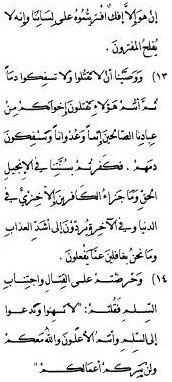 إن هو إلا إفك افتريتموه على لساننا وإنه لا
يفلح المفترون.
(١٣) ووصينا أن لا تقتلوا ولا تسفكوا دماً
ثم أنتم هؤلاء تقتلون إخوانكم من
عبادنا الصالحين إثماً وعدواناً وتسفكون
دمهم. فكفرتم بسنتنا في الإنجيل
الحق وما جزاء الكافرين إلا خزي في
الدنيا وفي الآخرة يردون إلى أشد العذاب
وما نحن بغافلين عما يفعلون.
(١٤) وحرضتم على القتال واجتناب
السلم فقلتم: "لا تهنوا وتدعوا
إلى السلم وأنتم الأعلون والله معكم
ولن يتركم أعمالكم"